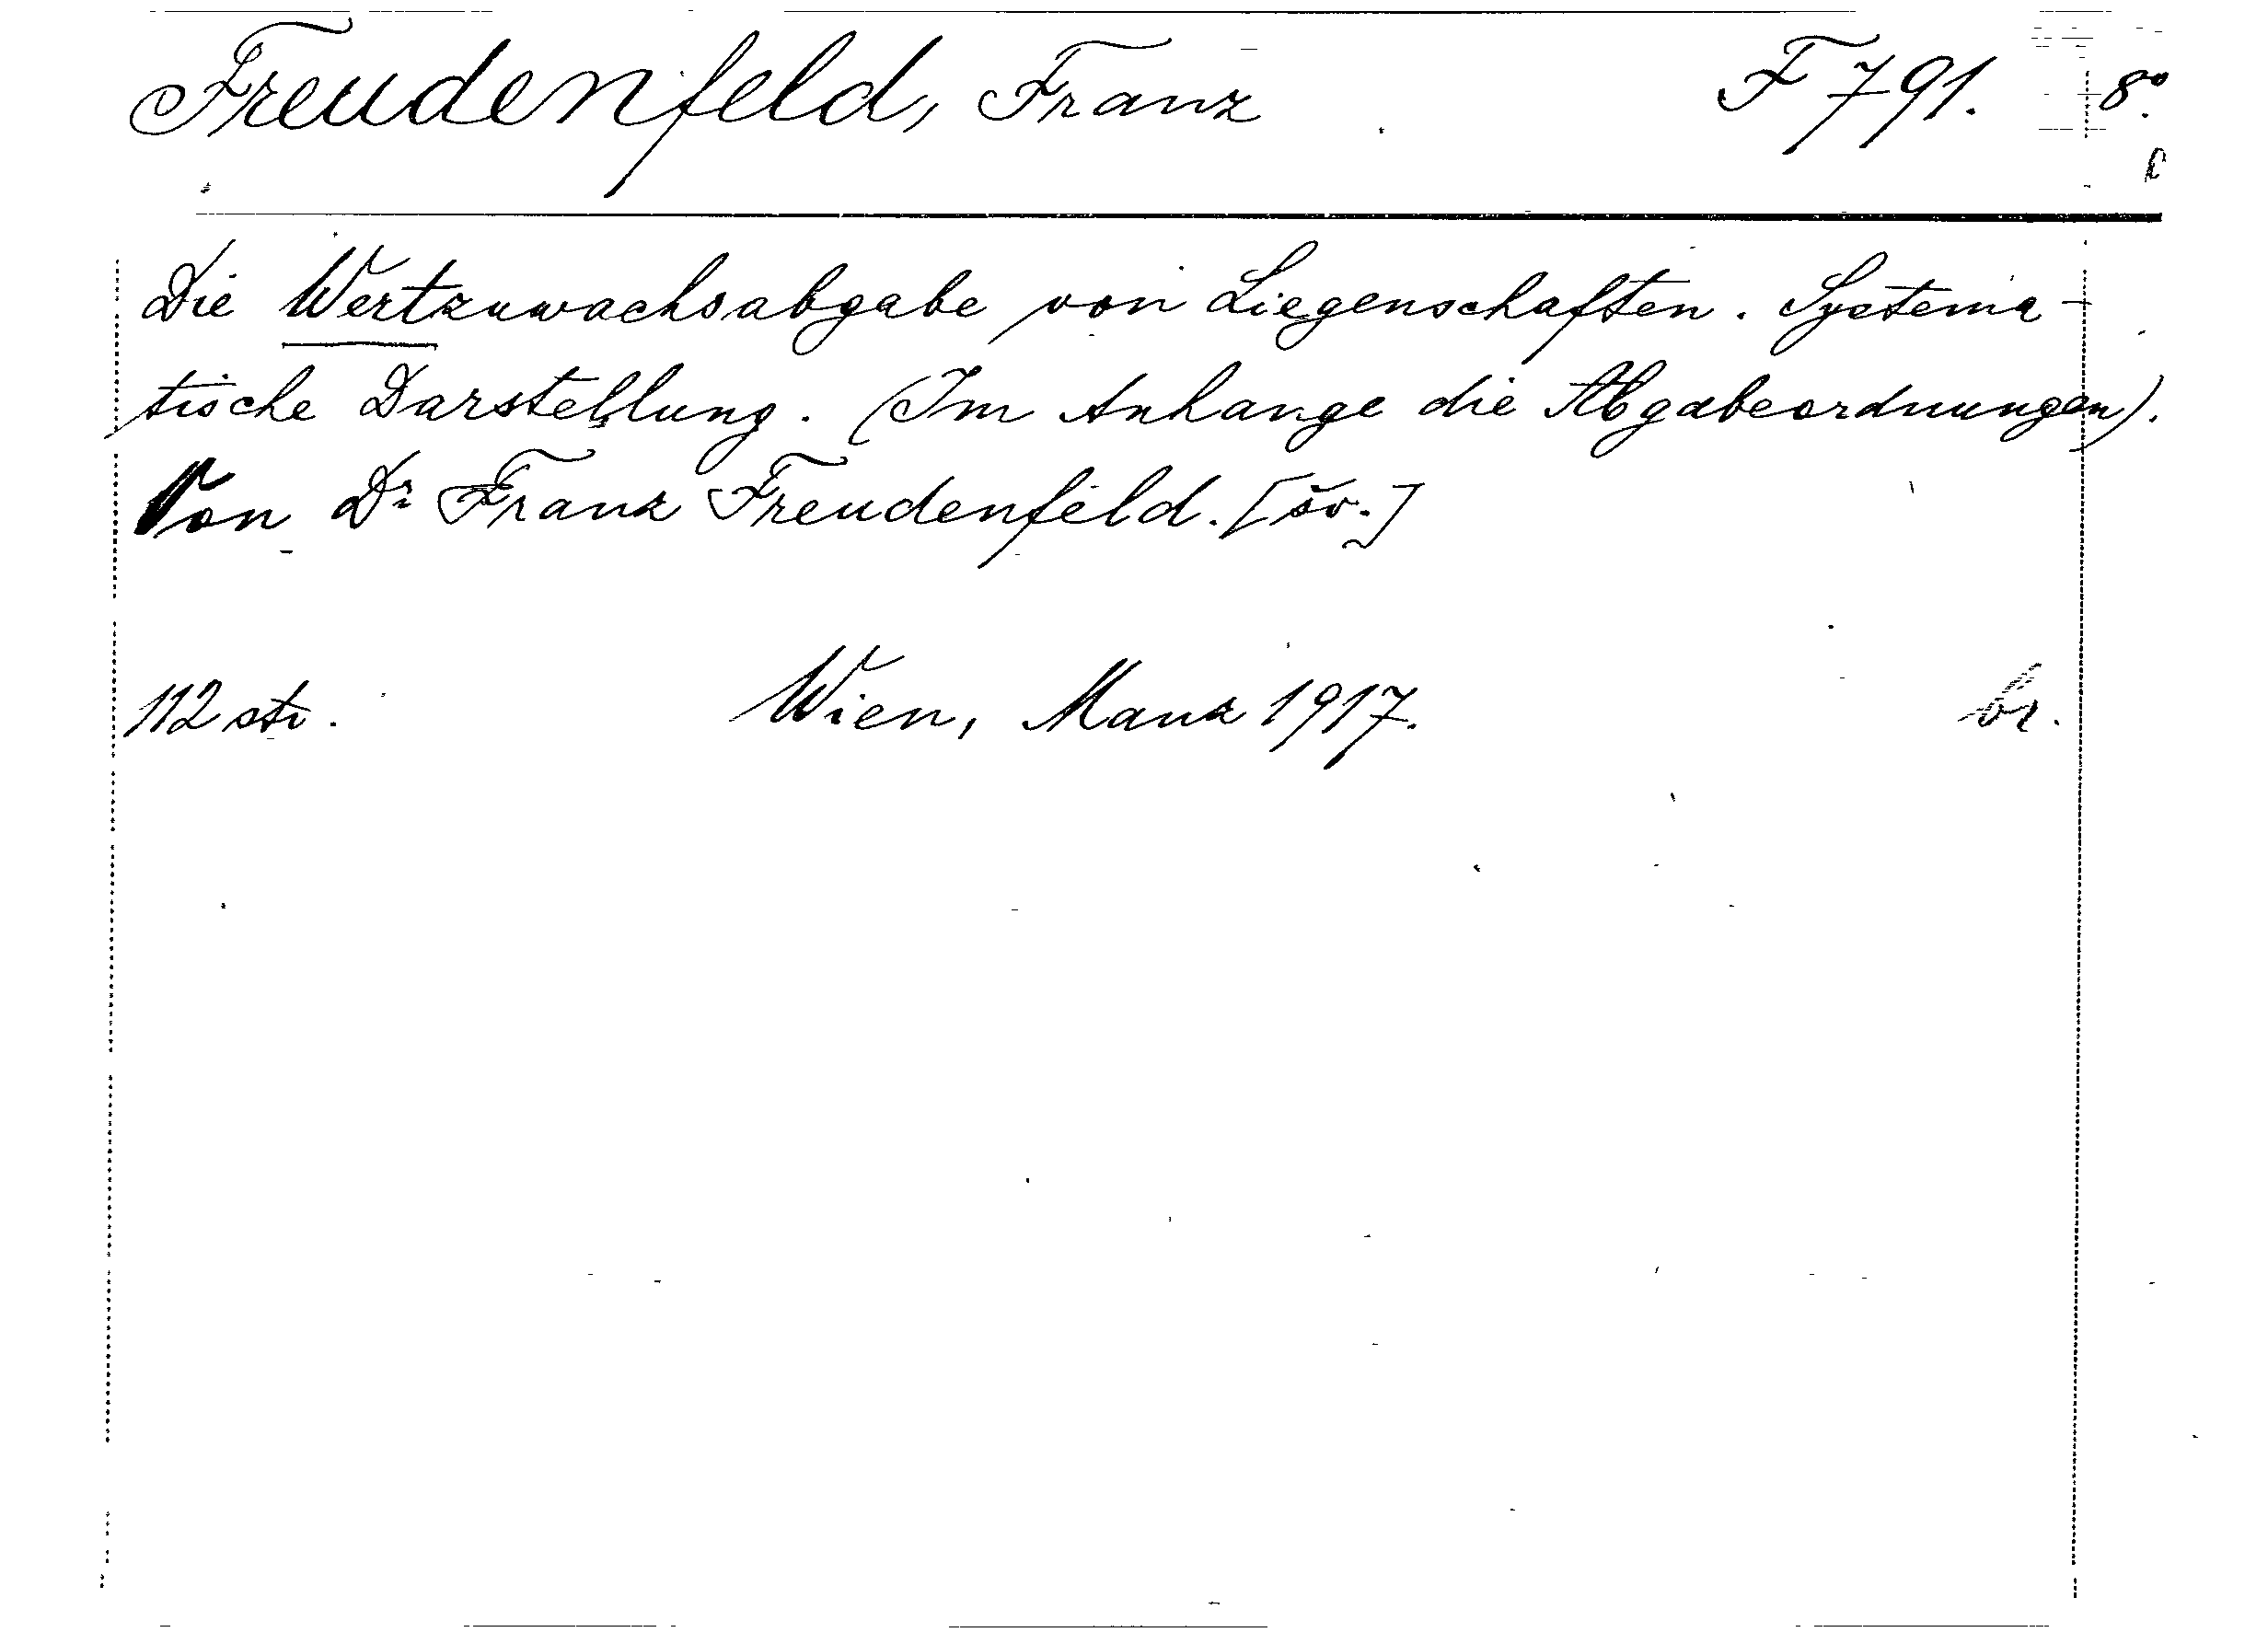 Freudenfeld, Franz F 791. 8°.
Die Wertzuwachsabgabe von Liegenschaften. Systema-
tische Darstellung. (Im Anhange die Abgabeordnungen).
Von Dr Franz Freudenfeld. [šv.]
112 str. Wien, Manz 1917. br.